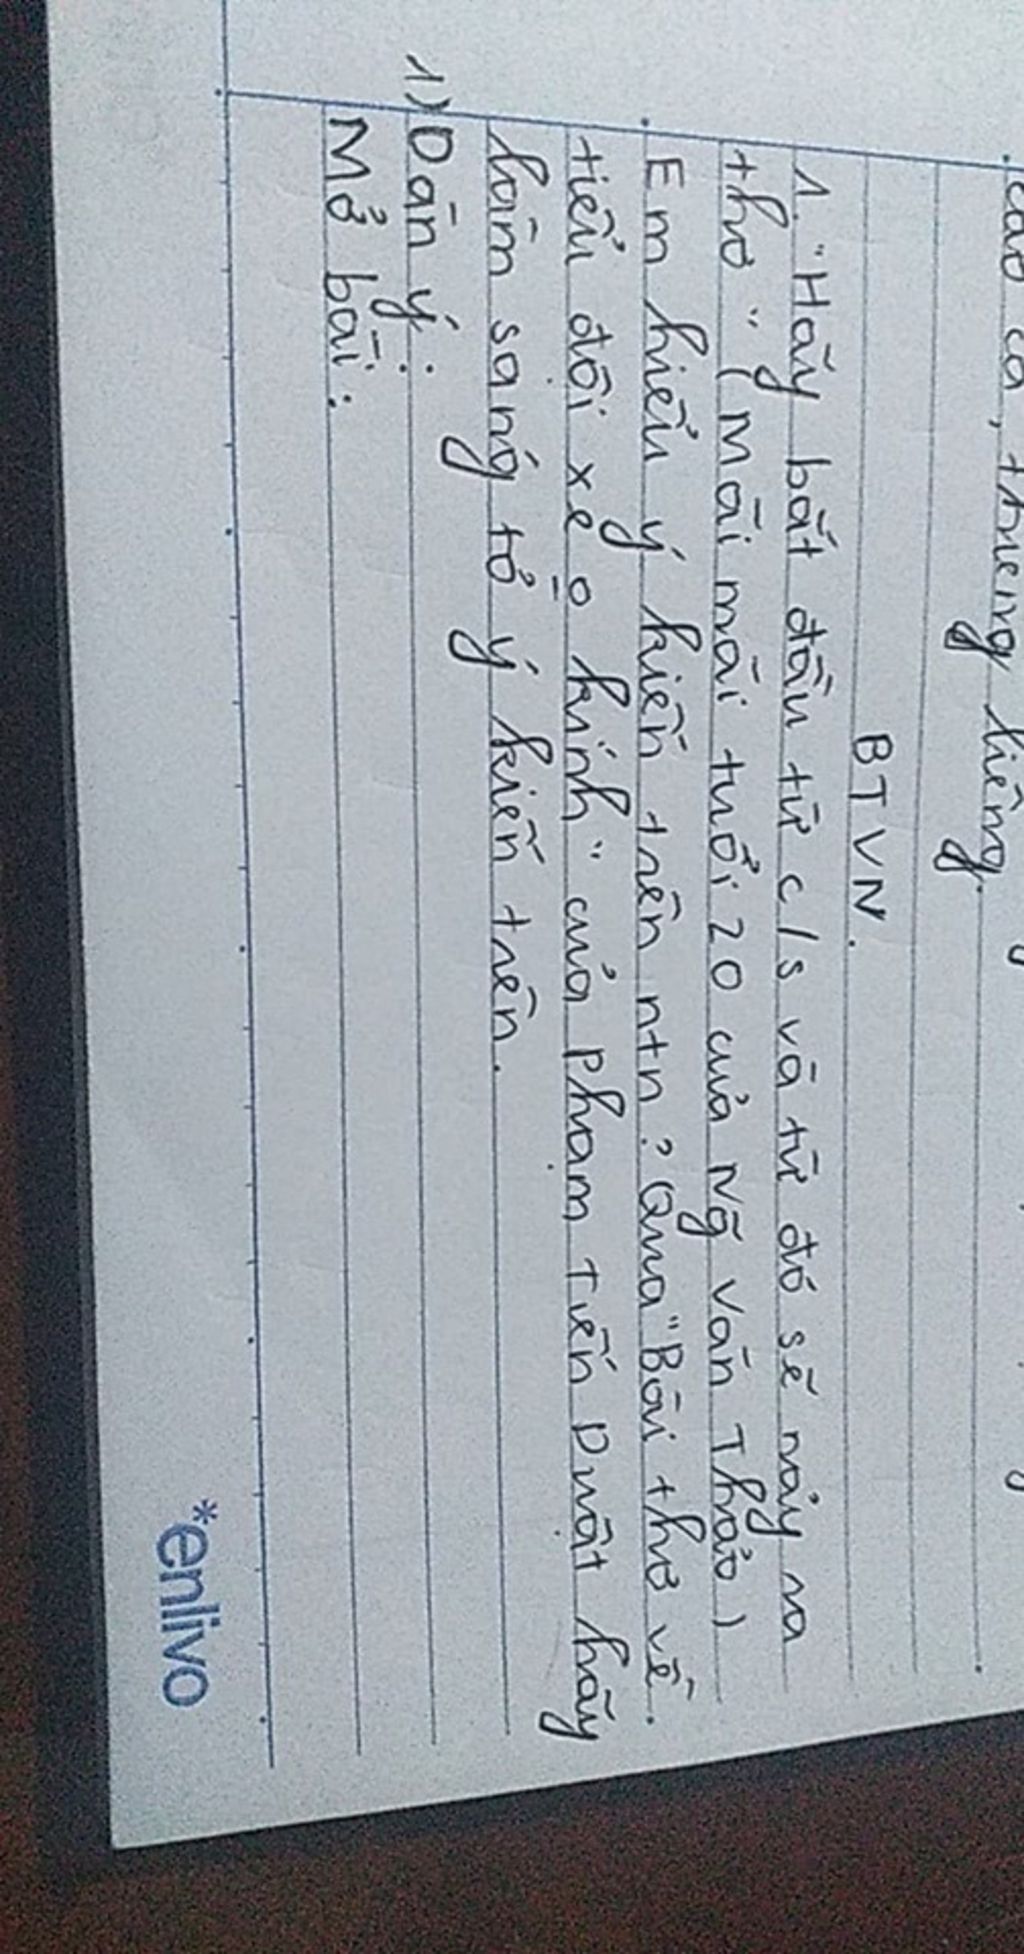 , trưng liêng.
BTVN.
1. "Hãy bắt đầu từ c/s và từ đó sẽ nảy ra
thơ" (Mãi mãi tuổi 20 của Ng Văn Thạo)
Em hiểu ý kiến trên ntn? Qua "Bài thơ về
tiểu đội xe o kính" của Phạm Tiến Duật hãy
làm sáng tỏ ý kiến trên.
1) Dàn ý:
Mở bài:
*enlivo